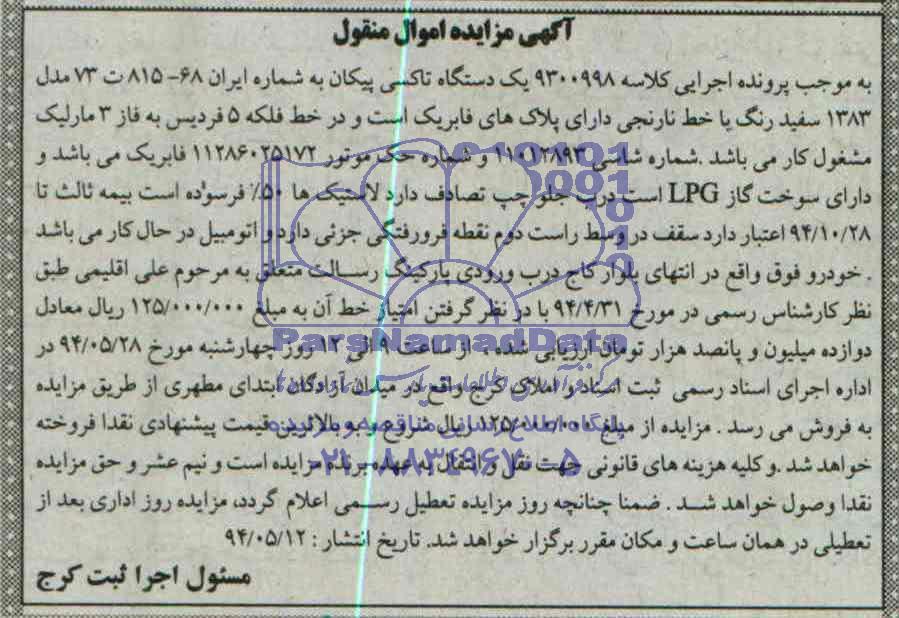 آگهی مزایده اموال منقول
به موجب پرونده اجرایی کلاسه ۹۳۰۰۹۹۸ یک دستگاه تاکسی پیکان به شماره ایران ۶۸- ۸۱۵ ت ۷۳ مدل
۱۳۸۳ سفید رنگ یا خط نارنجی دارای پلاک های فابریک است و در خط فلکه ۵ فردیس به فاز ۳ مارلیک
مشغول کار می باشد .شماره شاسی ۱۱۰۱۲۸۹۳ و شماره حک موتور ۱۱۲۸۶۰۲۵۱۷۲ فابریک می باشد و
دارای سوخت گاز LPG است درب جلو چپ تصادف دارد لاستیک ها ۵۰٪ فرسوده است بیمه ثالث تا
۹۴/۱۰/۲۸ اعتبار دارد سقف در وسط راست دوم نقطه فرورفتگی جزئی دارد و اتومبیل در حال کار می باشد
. خودرو فوق واقع در انتهای بلوار کاج درب ورودی پارکینگ رسالت متعلق به مرحوم علی اقلیمی طبق
نظر کارشناس رسمی در مورخ ۹۴/۴/۳۱ با در نظر گرفتن امتیاز خط آن به مبلغ ۱۲۵/۰۰۰/۰۰۰ ریال معادل
دوازده میلیون و پانصد هزار تومان ارزیابی شده . از ساعت ۹ الی ۱۲ روز چهارشنبه مورخ ۹۴/۰۵/۲۸ در
اداره اجرای اسناد رسمی ثبت اسناد و املاک کرج واقع در میدان آزادگان ابتدای مطهری از طریق مزایده
به فروش می رسد . مزایده از مبلغ ۱۲۵/۰۰۰/۰۰۰ ریال شروع و به بالاترین قیمت پیشنهادی نقدا فروخته
خواهد شد .و کلیه هزینه های قانونی جهت نقل و انتقال به عهده برنده مزایده است و نیم عشر و حق مزایده
نقدا وصول خواهد شد . ضمنا چنانچه روز مزایده تعطیل رسمی اعلام گردد، مزایده روز اداری بعد از
تعطیلی در همان ساعت و مکان مقرر برگزار خواهد شد. تاریخ انتشار : ۹۴/۰۵/۱۲
مسئول اجرا ثبت کرج
ParsNamadData
پایگاه اطلاع رسانی مناقصه و مزایده
۰۲۱-۸۸۳۴۹۶۷۰-۵